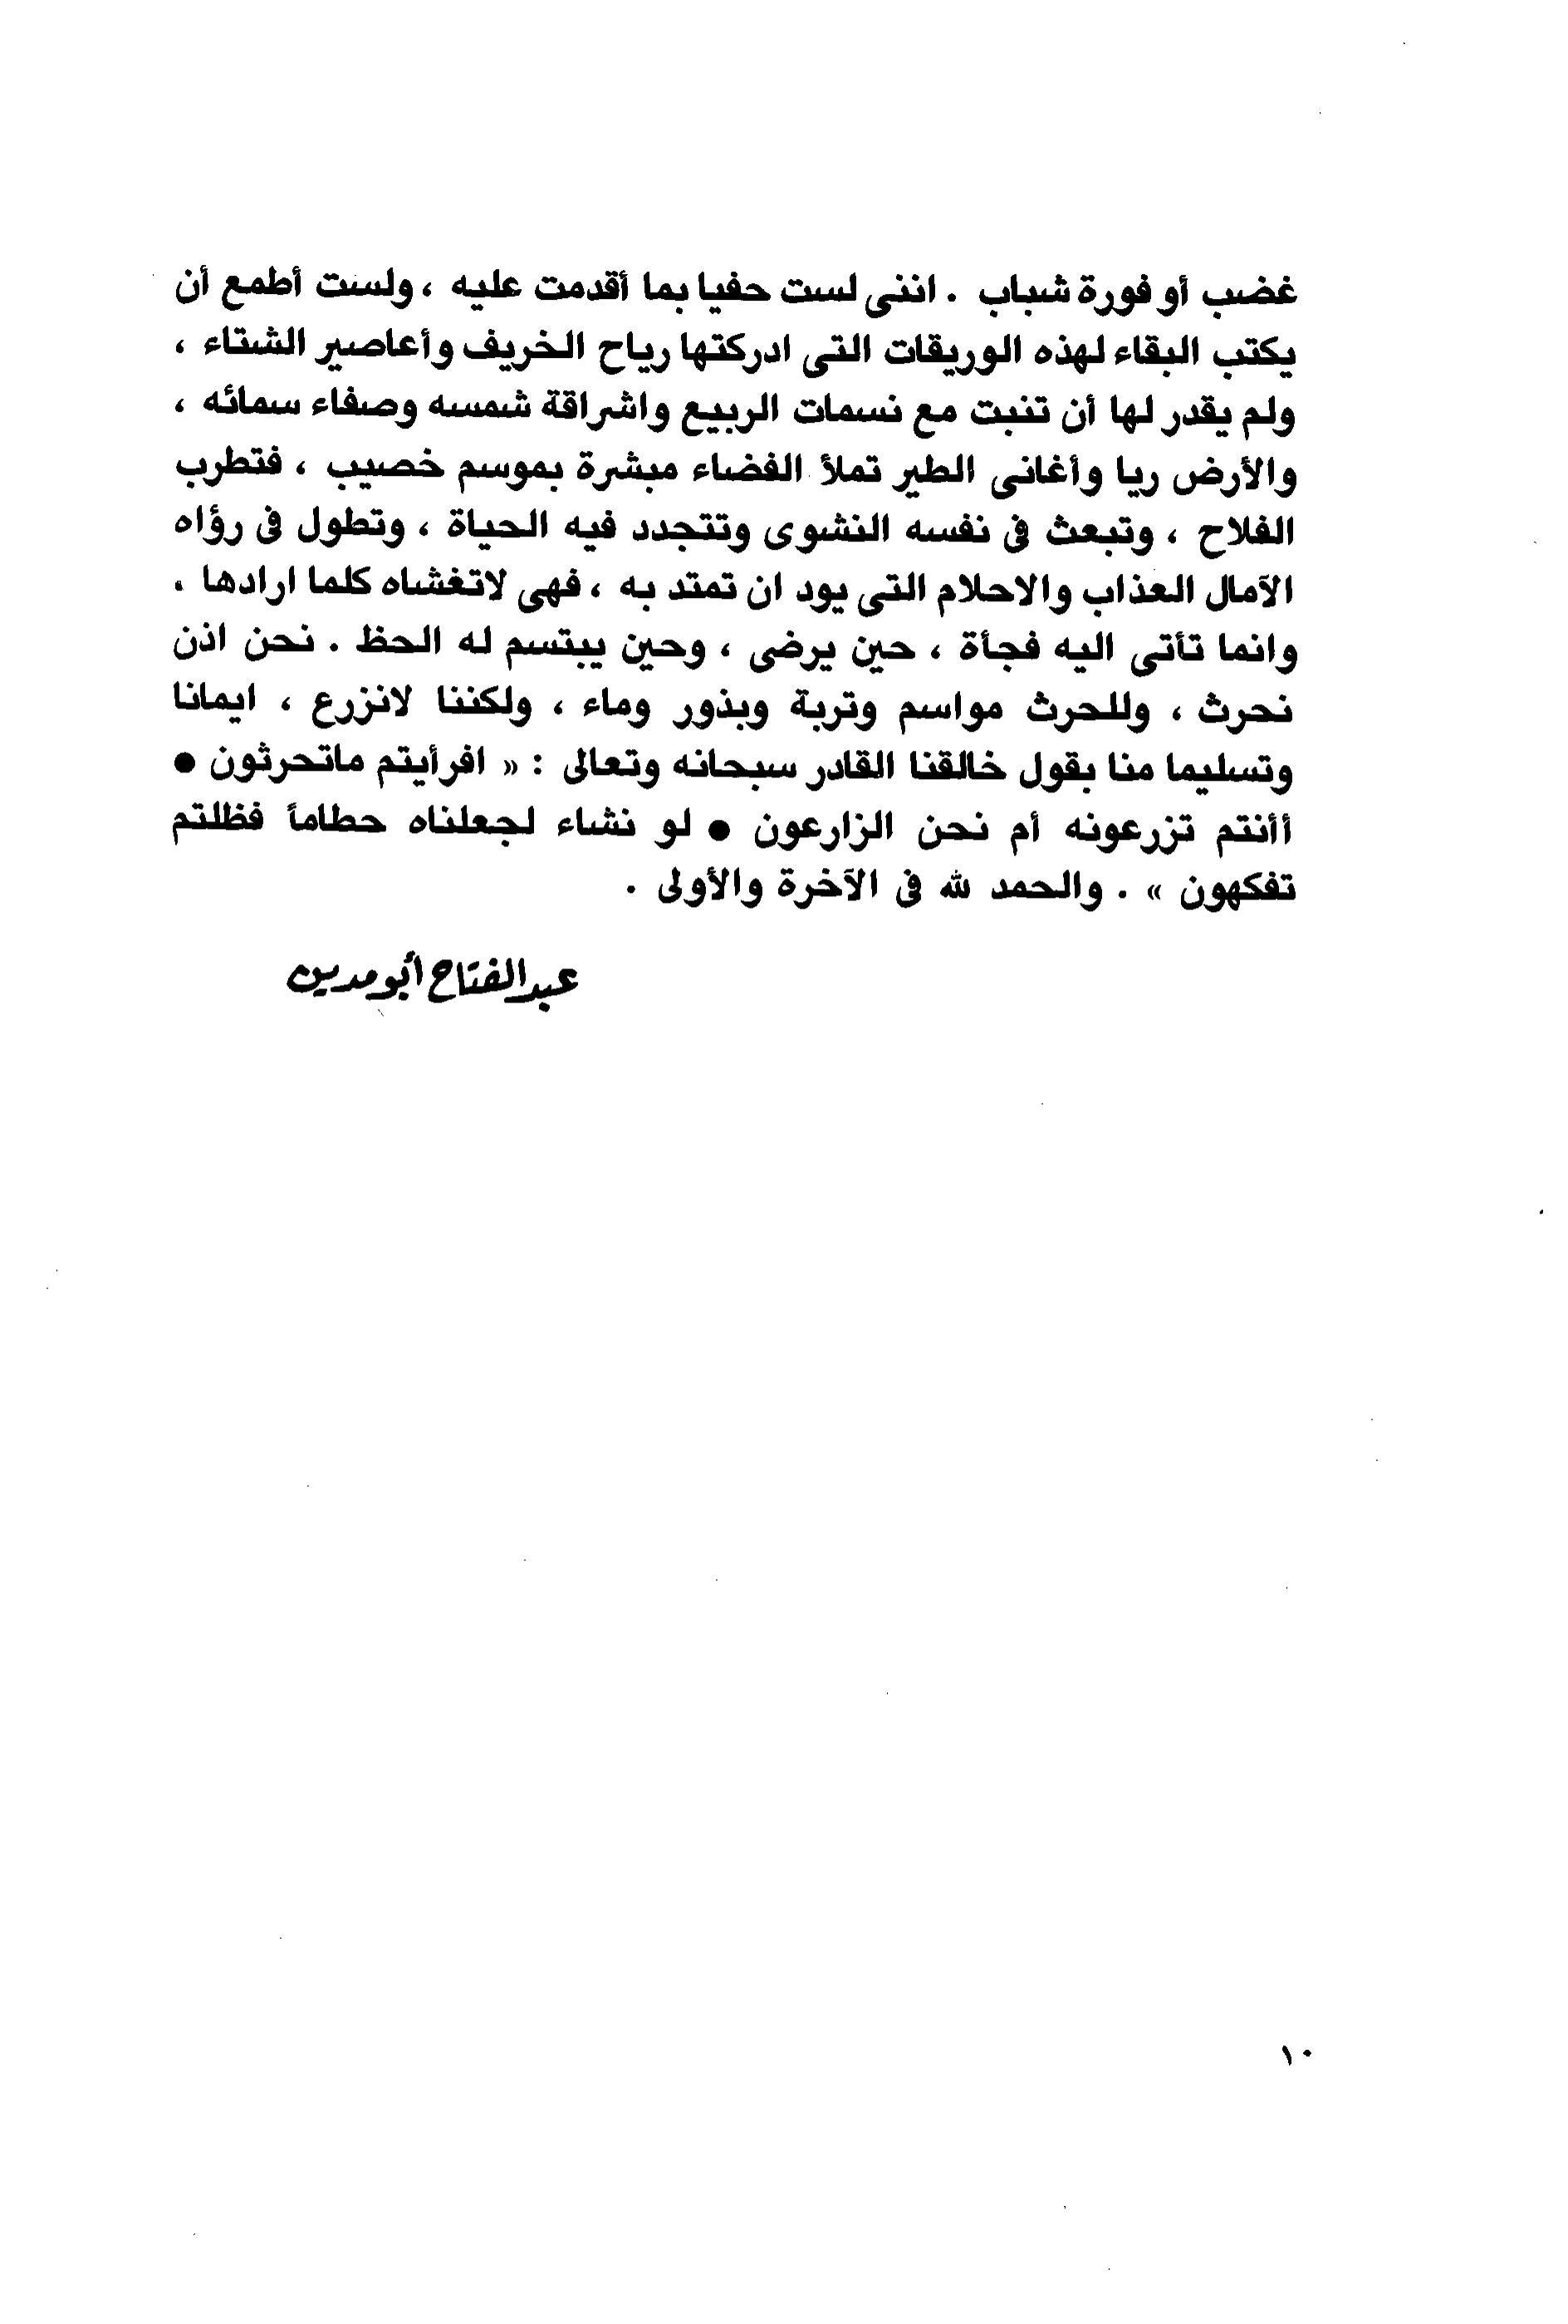 غضب أو فورة شباب . اننى لست حفيا بما أقدمت عليه ، ولست أطمع أن
يكتب البقاء لهذه الوريقات التى ادركتها رياح الخريف وأعاصير الشتاء ،
ولم يقدر لها أن تنبت مع نسمات الربيع واشراقة شمسه وصفاء سمائه ،
والأرض ريا وأغانى الطير تملأ الفضاء مبشرة بموسم خصيب ، فتطرب
الفلاح ، وتبعث فى نفسه النشوى وتتجدد فيه الحياة ، وتطول فى رؤاه
الآمال العذاب والاحلام التى يود ان تمتد به ، فهى لاتغشاه كلما ارادها .
وانما تأتى اليه فجأة ، حين يرضى ، وحين يبتسم له الحظ . نحن اذن
نحرث ، وللحرث مواسم وتربة وبذور وماء ، ولكننا لانزرع ، ايمانا
وتسليما منا بقول خالقنا القادر سبحانه وتعالى : « افرأيتم ماتحرثون ●
أأنتم تزرعونه أم نحن الزارعون ● لو نشاء لجعلناه حطاماً فظلتم
تفكهون » . والحمد لله فى الآخرة والأولى .
عبد الفتاح أبو مدين
١٠